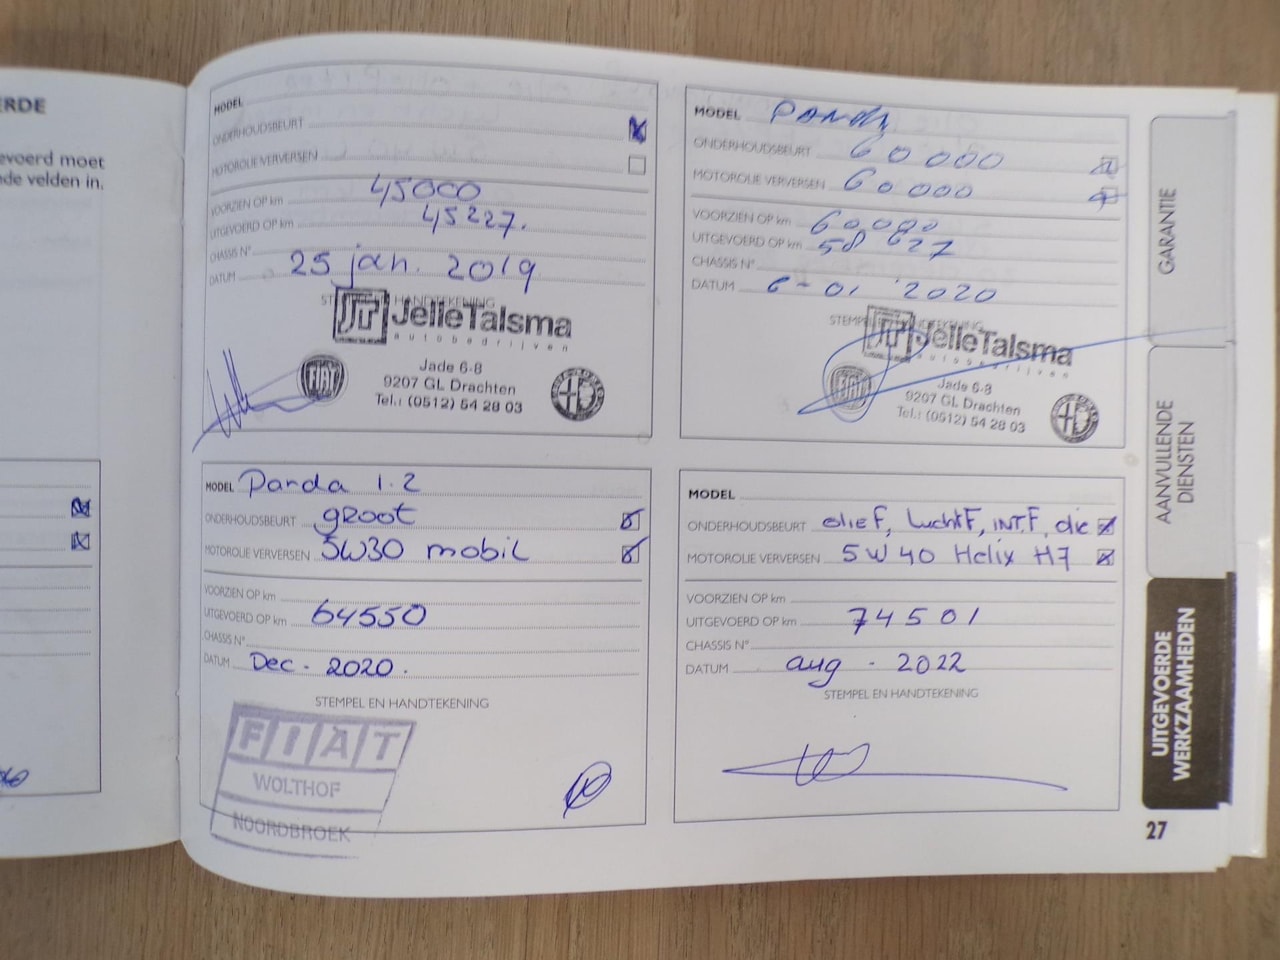 ERDE
evoerd moet
nde velden in.
MODEL
ONDERHOUDSBEURT
MOTOROLIE VERVERSEN
VOORZIEN OP km 45000
UITGEVOERD OP km 45227.
CHASSIS N°
DATUM 25 jan. 2019
STEMPEL EN HANDTEKENING
JT JelleTalsma
autobedrijven
FIAT
Jade 6-8
9207 GL Drachten
Tel.: (0512) 54 28 03
MODEL Panda
ONDERHOUDSBEURT 60000
MOTOROLIE VERVERSEN 60000
VOORZIEN OP km 60.000
UITGEVOERD OP km 58627
CHASSIS N°
DATUM 6-01 '2020
STEMPEL EN HANDTEKENING
JT JelleTalsma
autobedrijven
FIAT
Jade 6-8
9207 GL Drachten
Tel.: (0512) 54 28 03
MODEL Panda 1.2
ONDERHOUDSBEURT groot
MOTOROLIE VERVERSEN 5W30 mobil
VOORZIEN OP km
UITGEVOERD OP km 64550
CHASSIS N°
DATUM Dec. 2020.
STEMPEL EN HANDTEKENING
FIAT
WOLTHOF
NOORDBROEK
MODEL
ONDERHOUDSBEURT olie F, lucht F, INT.F, olie
MOTOROLIE VERVERSEN 5W40 Helix H7
VOORZIEN OP km
UITGEVOERD OP km 74501
CHASSIS N°
DATUM aug. 2022
STEMPEL EN HANDTEKENING
GARANTIE
AANVULLENDE
DIENSTEN
UITGEVOERDE
WERKZAAMHEDEN
27